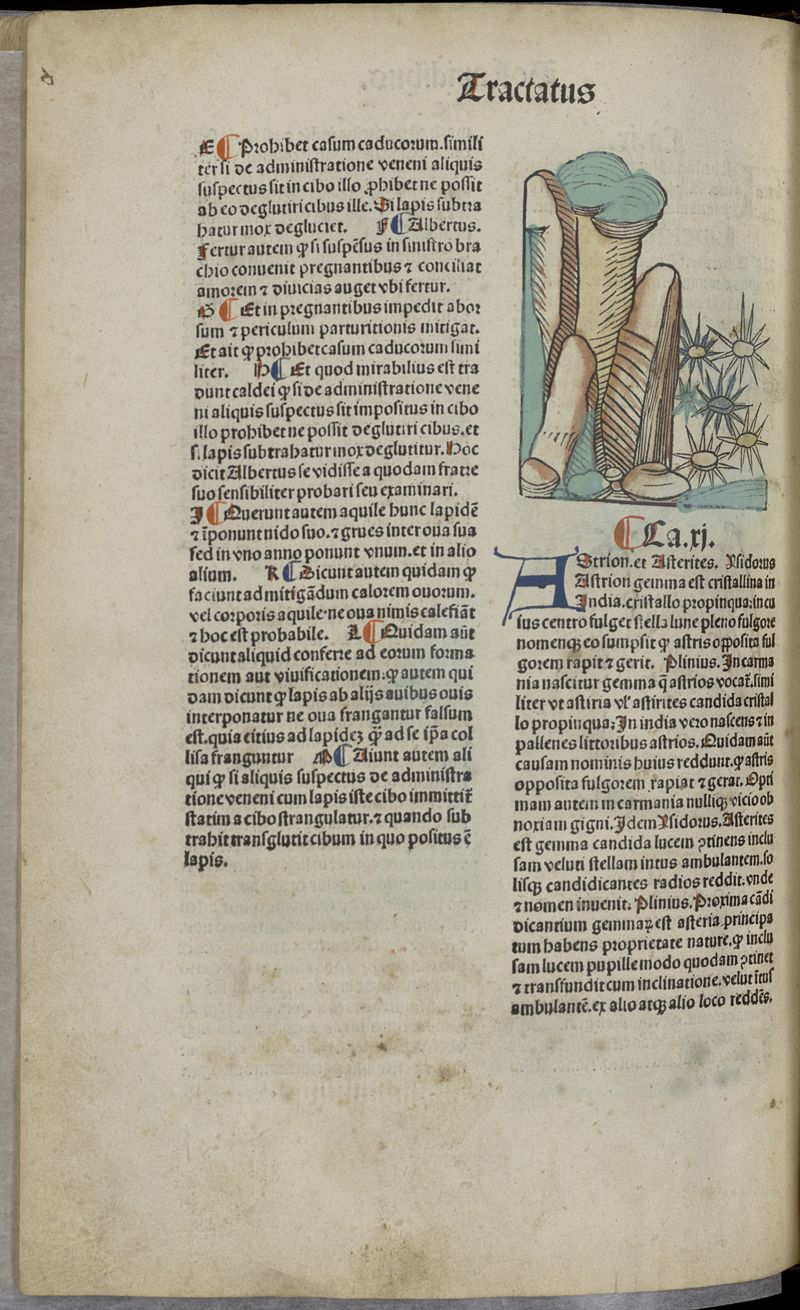 Tractatus
E ¶ Prohibet casum caducorum.simili
ter si de administratione veneni aliquis
suspectus sit in cibo illo ꝓhibet ne possit
ab eo deglutiri cibus ille. Si lapis subtra
hatur mox degluciet. F ¶ Albertus.
Fertur autem ꝙ si suspēsus in sinistro bra
chio conuenit pregnantibus ⁊ conciliat
amorem ⁊ diuicias auget vbi fertur.
G ¶ Et in pregnantibus impedit abor
sum ⁊ periculum parturitionis mitigat.
Et ait ꝙ prohibet casum caducorum simi
liter. H ¶ Et quod mirabilius est tra
dunt caldei ꝙ si de administratione vene
ni aliquis suspectus sit impositus in cibo
illo prohibet ne possit deglutiri cibus.et
si lapis subtrahatur mox deglutitur. Hoc
dicit Albertus se vidisse a quodam fratre
suo sensibiliter probari seu examinari.
J ¶ Querunt autem aquile hunc lapidē
⁊ īponunt nido suo.⁊ grues inter oua sua
sed in vno anno ponunt vnum.et in alio
alium. K ¶ Dicunt autem quidam ꝙ
faciunt ad mitigādum calorem ouorum.
vel corporis aquile·ne oua nimis calefiāt
⁊ hoc est probabile. L ¶ Quidam aūt
dicunt aliquid conferre ad eorum forma
tionem aut viuificationem:ꝙ autem qui
dam dicunt ꝙ lapis ab alijs auibus ouis
interponatur ne oua frangantur falsum
est.quia citius ad lapideȝ ꝙ̄ ad se ip̄a col
lisa franguntur M ¶ Aiunt autem ali
qui ꝙ si aliquis suspectus de administra
tione veneni cum lapis iste cibo immittit̄
statim a cibo strangulatur.⁊ quando sub
trahit transglutit cibum in quo positus ē
lapis.
¶ Ca.xj.
AStrion.et Asterites. Ysidorus
Astrion gemma est cristallina in
India.cristallo propinqua:in cu
ius centro fulget stella lune pleno fulgore
nomenqꝫ eo sumpsit ꝙ astris opposita ful
gorem rapit ⁊ gerit. Plinius. In carma
nia nascitur gemma q̄ astrios vocat̄.simi
liter vt astiria vl' astirites candida cristal
lo propinqua:In india vero nascens ⁊ in
pallenes littoribus astrios. Quidam aūt
causam nominis huius reddunt.ꝙ astris
opposita fulgorem rapiat ⁊ gerat. Opti
mam autem in carmania nulliqꝫ vicio ob
noxiam gigni. Idem Ysidorus. Asterites
est gemma candida lucem ꝯtinens inclu
sam veluti stellam intus ambulantem.so
lisqꝫ candidicantes radios reddit:vnde
⁊ nomen inuenit. Plinius. Proxima cādi
dicantium gemmaꝝ est asteria.principa
tum habens proprietate nature.ꝙ inclu
sam lucem pupille modo quodam ꝯtinet
⁊ transfundit cum inclinatione.velut ītus
ambulantē.ex alio atqꝫ alio loco reddēs.